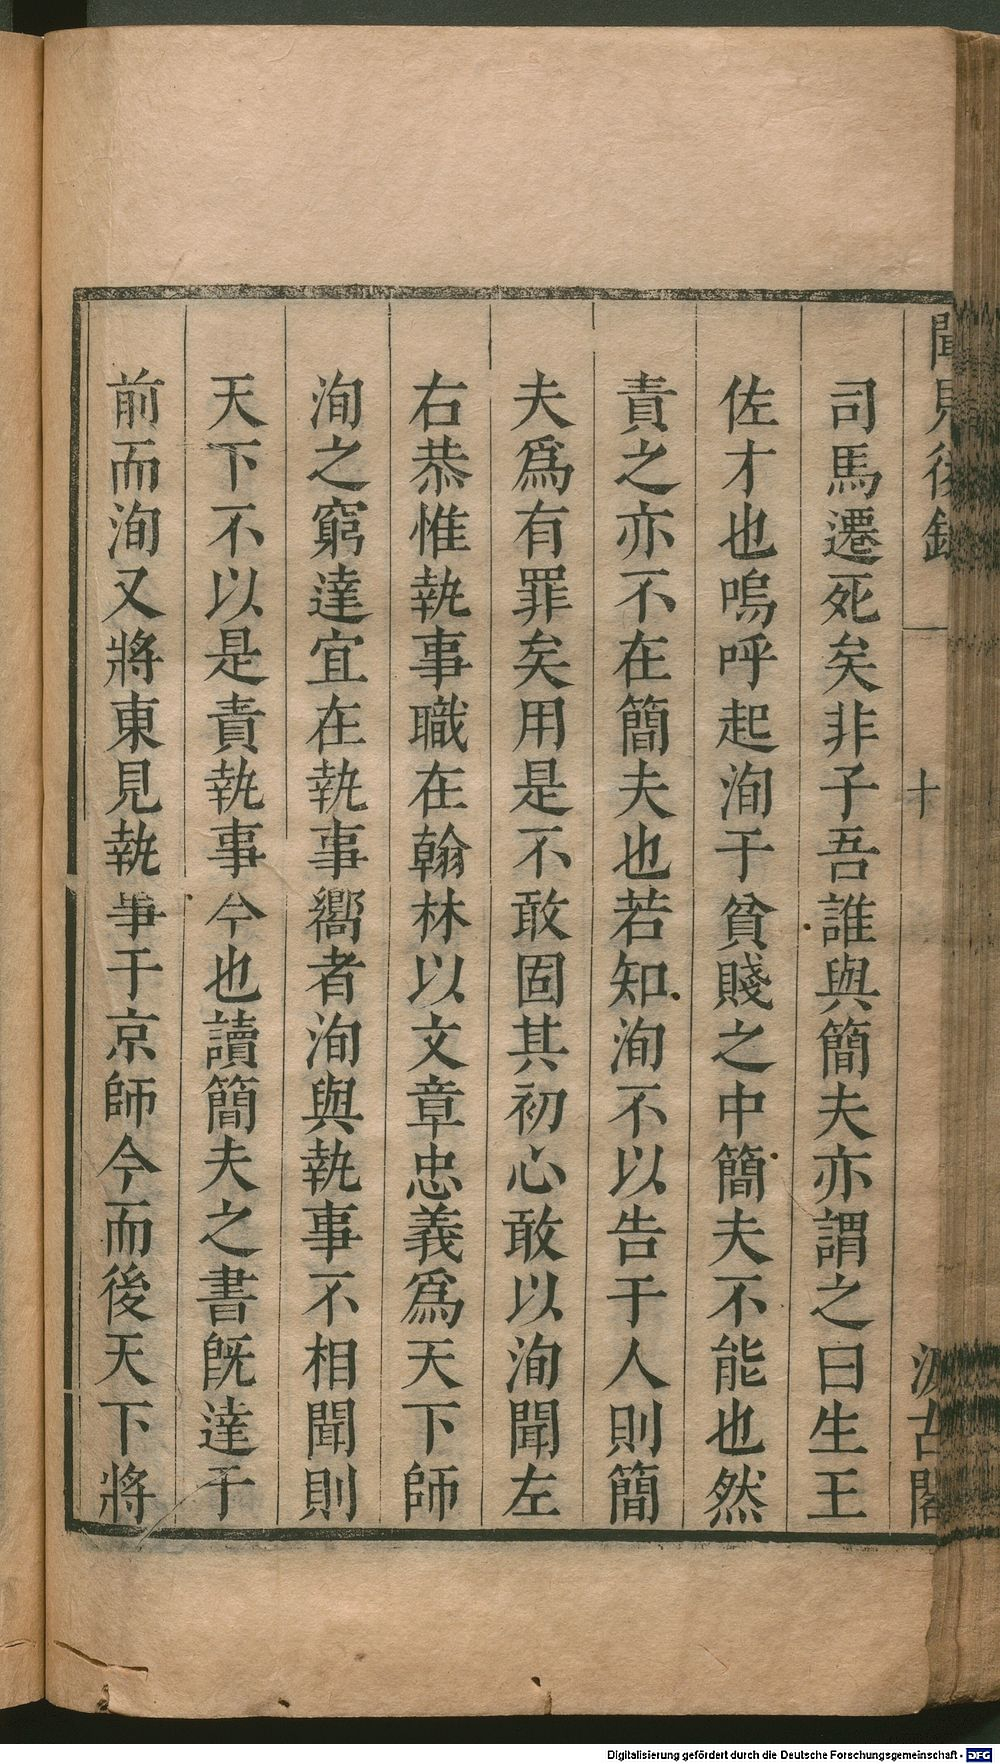 聞見後錄
十
汲古閣
司馬遷死矣非子吾誰與簡夫亦謂之曰生王
佐才也嗚呼起洵于貧賤之中簡夫不能也然
責之亦不在簡夫也若知洵不以告于人則簡
夫爲有罪矣用是不敢固其初心敢以洵聞左
右恭惟執事職在翰林以文章忠義爲天下師
洵之窮達宜在執事嚮者洵與執事不相聞則
天下不以是責執事今也讀簡夫之書旣達于
前而洵又將東見執事于京師今而後天下將
Digitalisierung gefördert durch die Deutsche Forschungsgemeinschaft - DFG